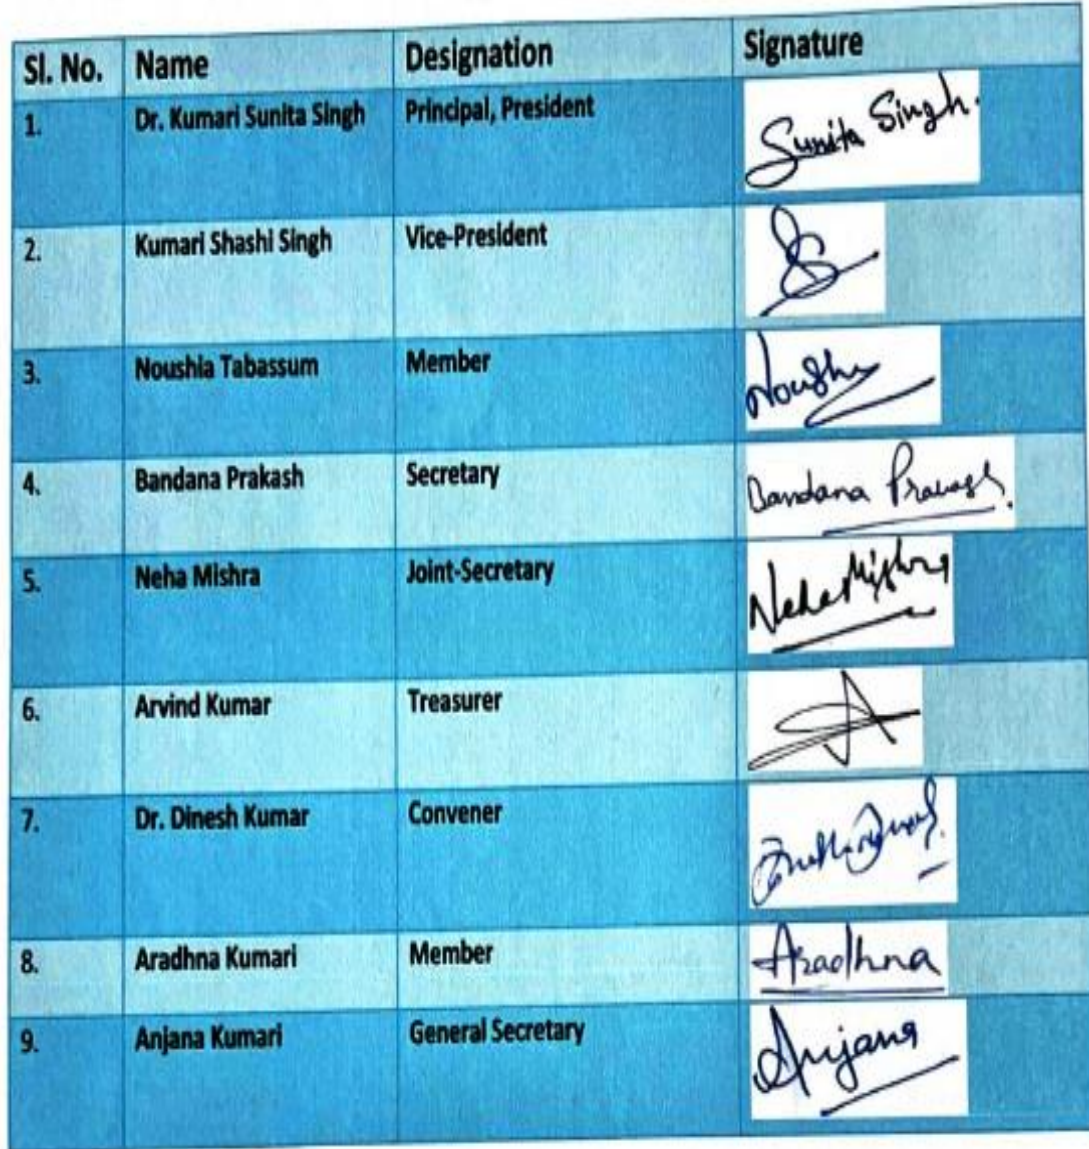 Sl. No. Name Designation Signature
1. Dr. Kumari Sunita Singh Principal, President Sunita Singh.
2. Kumari Shashi Singh Vice-President
3. Noushia Tabassum Member
4. Bandana Prakash Secretary Bandana Prakash.
5. Neha Mishra Joint-Secretary Neha Mishra
6. Arvind Kumar Treasurer
7. Dr. Dinesh Kumar Convener
8. Aradhna Kumari Member Aradhna
9. Anjana Kumari General Secretary Anjana